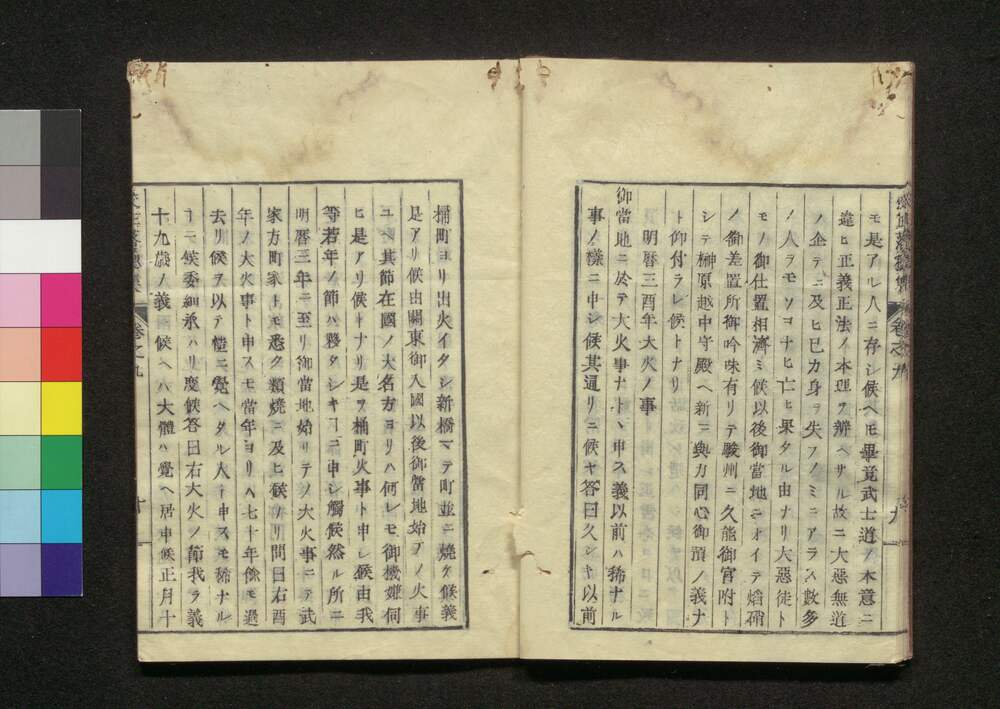 モ是アル人ニ存シ候ヘモ畢竟武士道ノ本意ニ
違ヒ正義正法ノ本理ヲ辨ヘサル故ニ大惡無道
ノ企テニ及ヒ已カ身ヲ失フノミニアラス數多
ノ人ヲモソコナヒ亡ヒ果タル由ナリ大惡徒ト
モノ御仕置相濟ミ候以後御當地ニオイテ焰硝
ノ御差置所御吟味有リテ駿州ニ久能御宮附ト
シテ榊原越中守殿ヘ新ニ與力同心御預ノ義ナ
ト仰付ラレ候トナリ
明曆三酉年大火ノ事
御當地ニ於テ大火事ナトヽ申ス義以前ハ稀ナル
事ノ樣ニ申シ候其通リニ候ヤ答曰久シキ以前
桶町ヨリ出火イタシ新橋マテ町並ニ燒ケ候義
是アリ候由關東御入國以後御當地始テノ火事
ユヘ其節在國ノ大名方ヨリハ何レモ御機嫌伺
ヒ是アリ候トナリ是ヲ桶町火事ト申シ候由我
等若年ノ節ハ夥タシキ ニ申シ觸候然ル所ニ
明曆三年ニ至リ御當地始リテノ大火事ニテ武
家方町家トモ悉ク類燒ニ及ヒ候ソリ問曰右酉
年ノ大火事ト申スモ當年ヨリハ七十年餘モ過
去リ候ヲ以テ慥ニ覺ヘタル人ト申スモ稀ナル
ニ候委細承ハリ度候答曰右大火ノ節我ラ義
十九歲ノ義 候ヘハ大體ハ覺ヘ居申候正月十
卷之九
九
卷之九
十